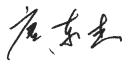 唐东杰